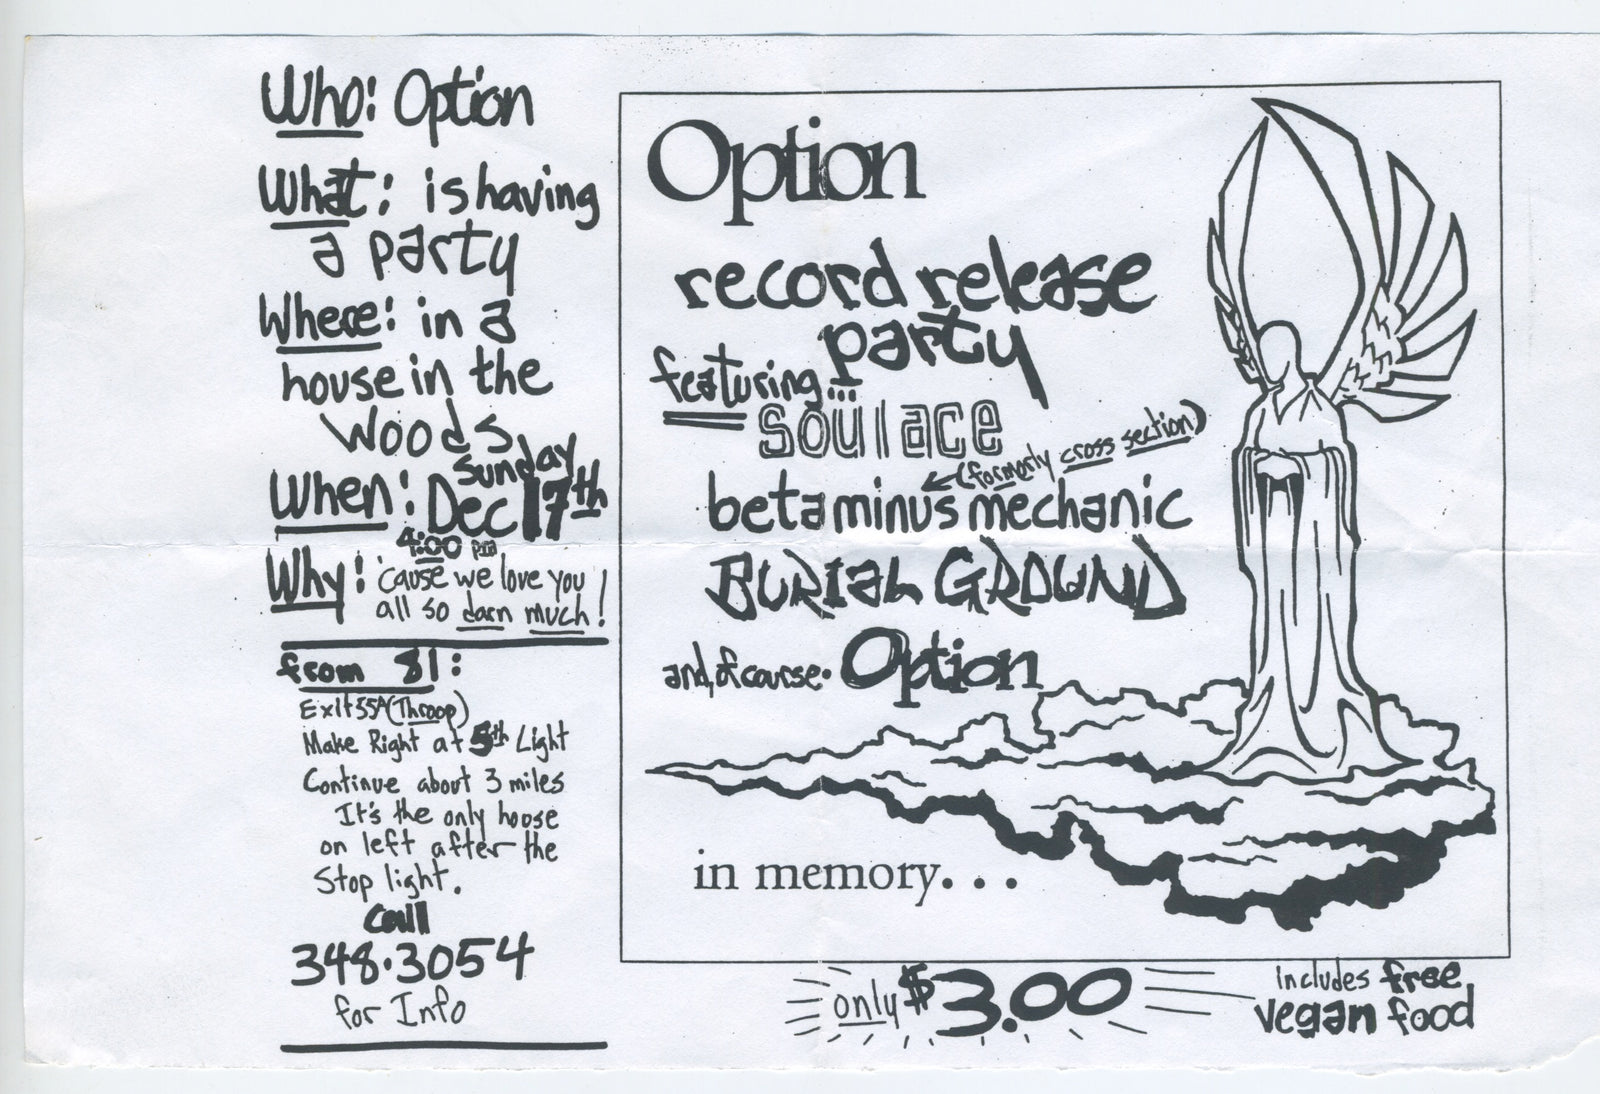 Who: Option
What: is having
a party
Where: in a
house in the
Woods
When: Sunday
Dec 17th
4:00 pm
Why: 'cause we love you
all so darn much!
from 81:
Exit 55A (Throop)
Make Right at 5th Light
Continue about 3 miles
It's the only house
on left after the
Stop light.
Call
348·3054
for Info
Option
record release
party
featuring...
soulace
(formerly cross section)
beta minus mechanic
BURIAL GROUND
and, of course· Option
in memory...
only $3.00
includes free
vegan food